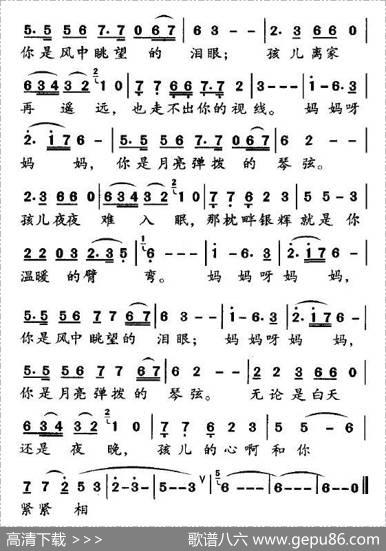 5. 5 5 6 7. 7 0 6 7 | 6 3 - - | 2. 3 6 6 0
你是风中眺望 的 泪眼； 孩 儿 离家
6 3 4 3 2 2 1 0 | 7 7 6 6 7 7 2 | 3 - - - | 1 - 6. 3
再 遥 远，也走不出你的视线。 妈妈呀
2. 1 7 6 - | 5. 5 5 6 7. 7 0 6 7 | 6 2 - - |
妈 妈，你是月亮弹拨 的 琴弦。
2. 3 6 6 0 | 6 3 4 3 2 2 1 0 | 7 7 6 2 3 | 5 5 1 5 |
孩儿夜夜 难 入眠，那枕畔银辉就是你
2 2 0 3 2. 3 5 | 1 6 - - - | 1 - 6. 3 | 2. 1 7 6 - |
温暖 的臂 弯。 妈妈呀妈 妈，
5. 5 5 6 7 7 6 7 | 6 3 - - | 1 - 6. 3 | 2. 1 7 6 - |
你是风中眺望的 泪眼；妈妈呀妈 妈，
5. 5 5 6 7 7 6 7 | 6 2 - - | 2 2 3 6 6 0 |
你是月亮弹拨的 琴弦。 无论是白天
6 3 4 3 2 2 1 0 | 7 7 6 2 3 | 5 5 - 6 |
还是 夜 晚，孩儿的心啊和你
7 7 2 5 3 | 2 - 3 - | 5 - - 3 ∨ | 5 6 - - - | 6 - - 0 ‖
紧紧 相
高清下载 >>> 歌谱八六 www.gepu86.com